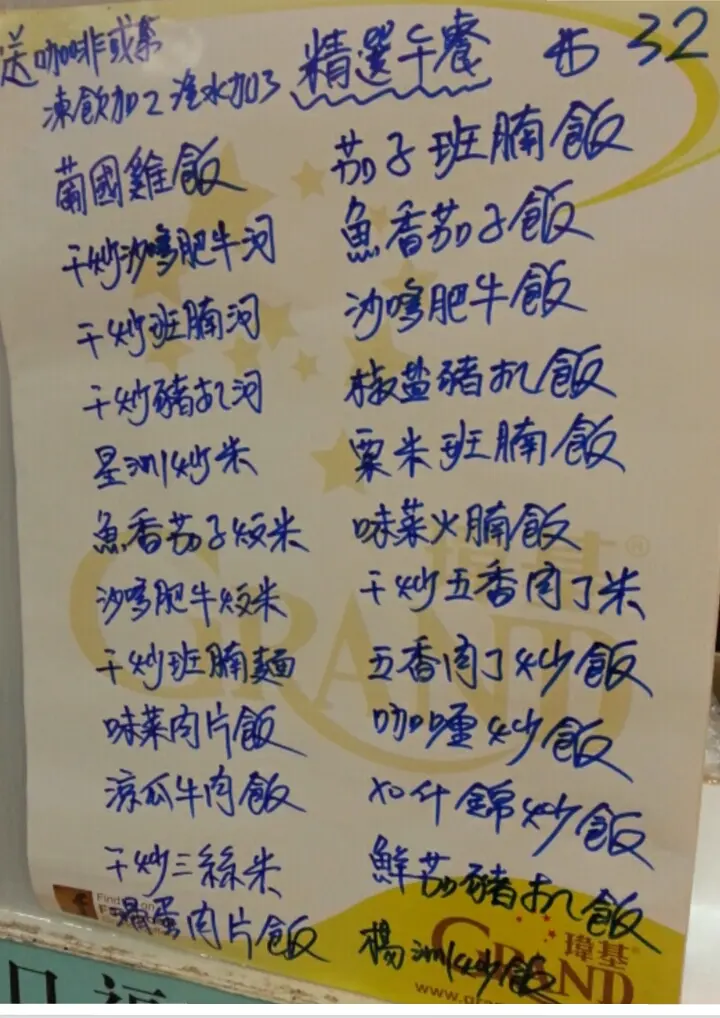 精選午餐 $32
送咖啡或茶
凍飲加2 汽水加3
葡國雞飯
干炒沙嗲肥牛河
干炒班腩河
干炒豬扒河
星洲炒米
魚香茄子炆米
沙嗲肥牛炆米
干炒班腩麵
味菜肉片飯
涼瓜牛肉飯
干炒三絲米
滑蛋肉片飯
茄子班腩飯
魚香茄子飯
沙嗲肥牛飯
椒盐豬扒飯
粟米班腩飯
味菜火腩飯
干炒五香肉丁米
五香肉丁炒飯
咖喱炒飯
什錦炒飯
鮮茄豬扒飯
楊洲炒飯
瑋基®
GRAND
瑋基
GRAND